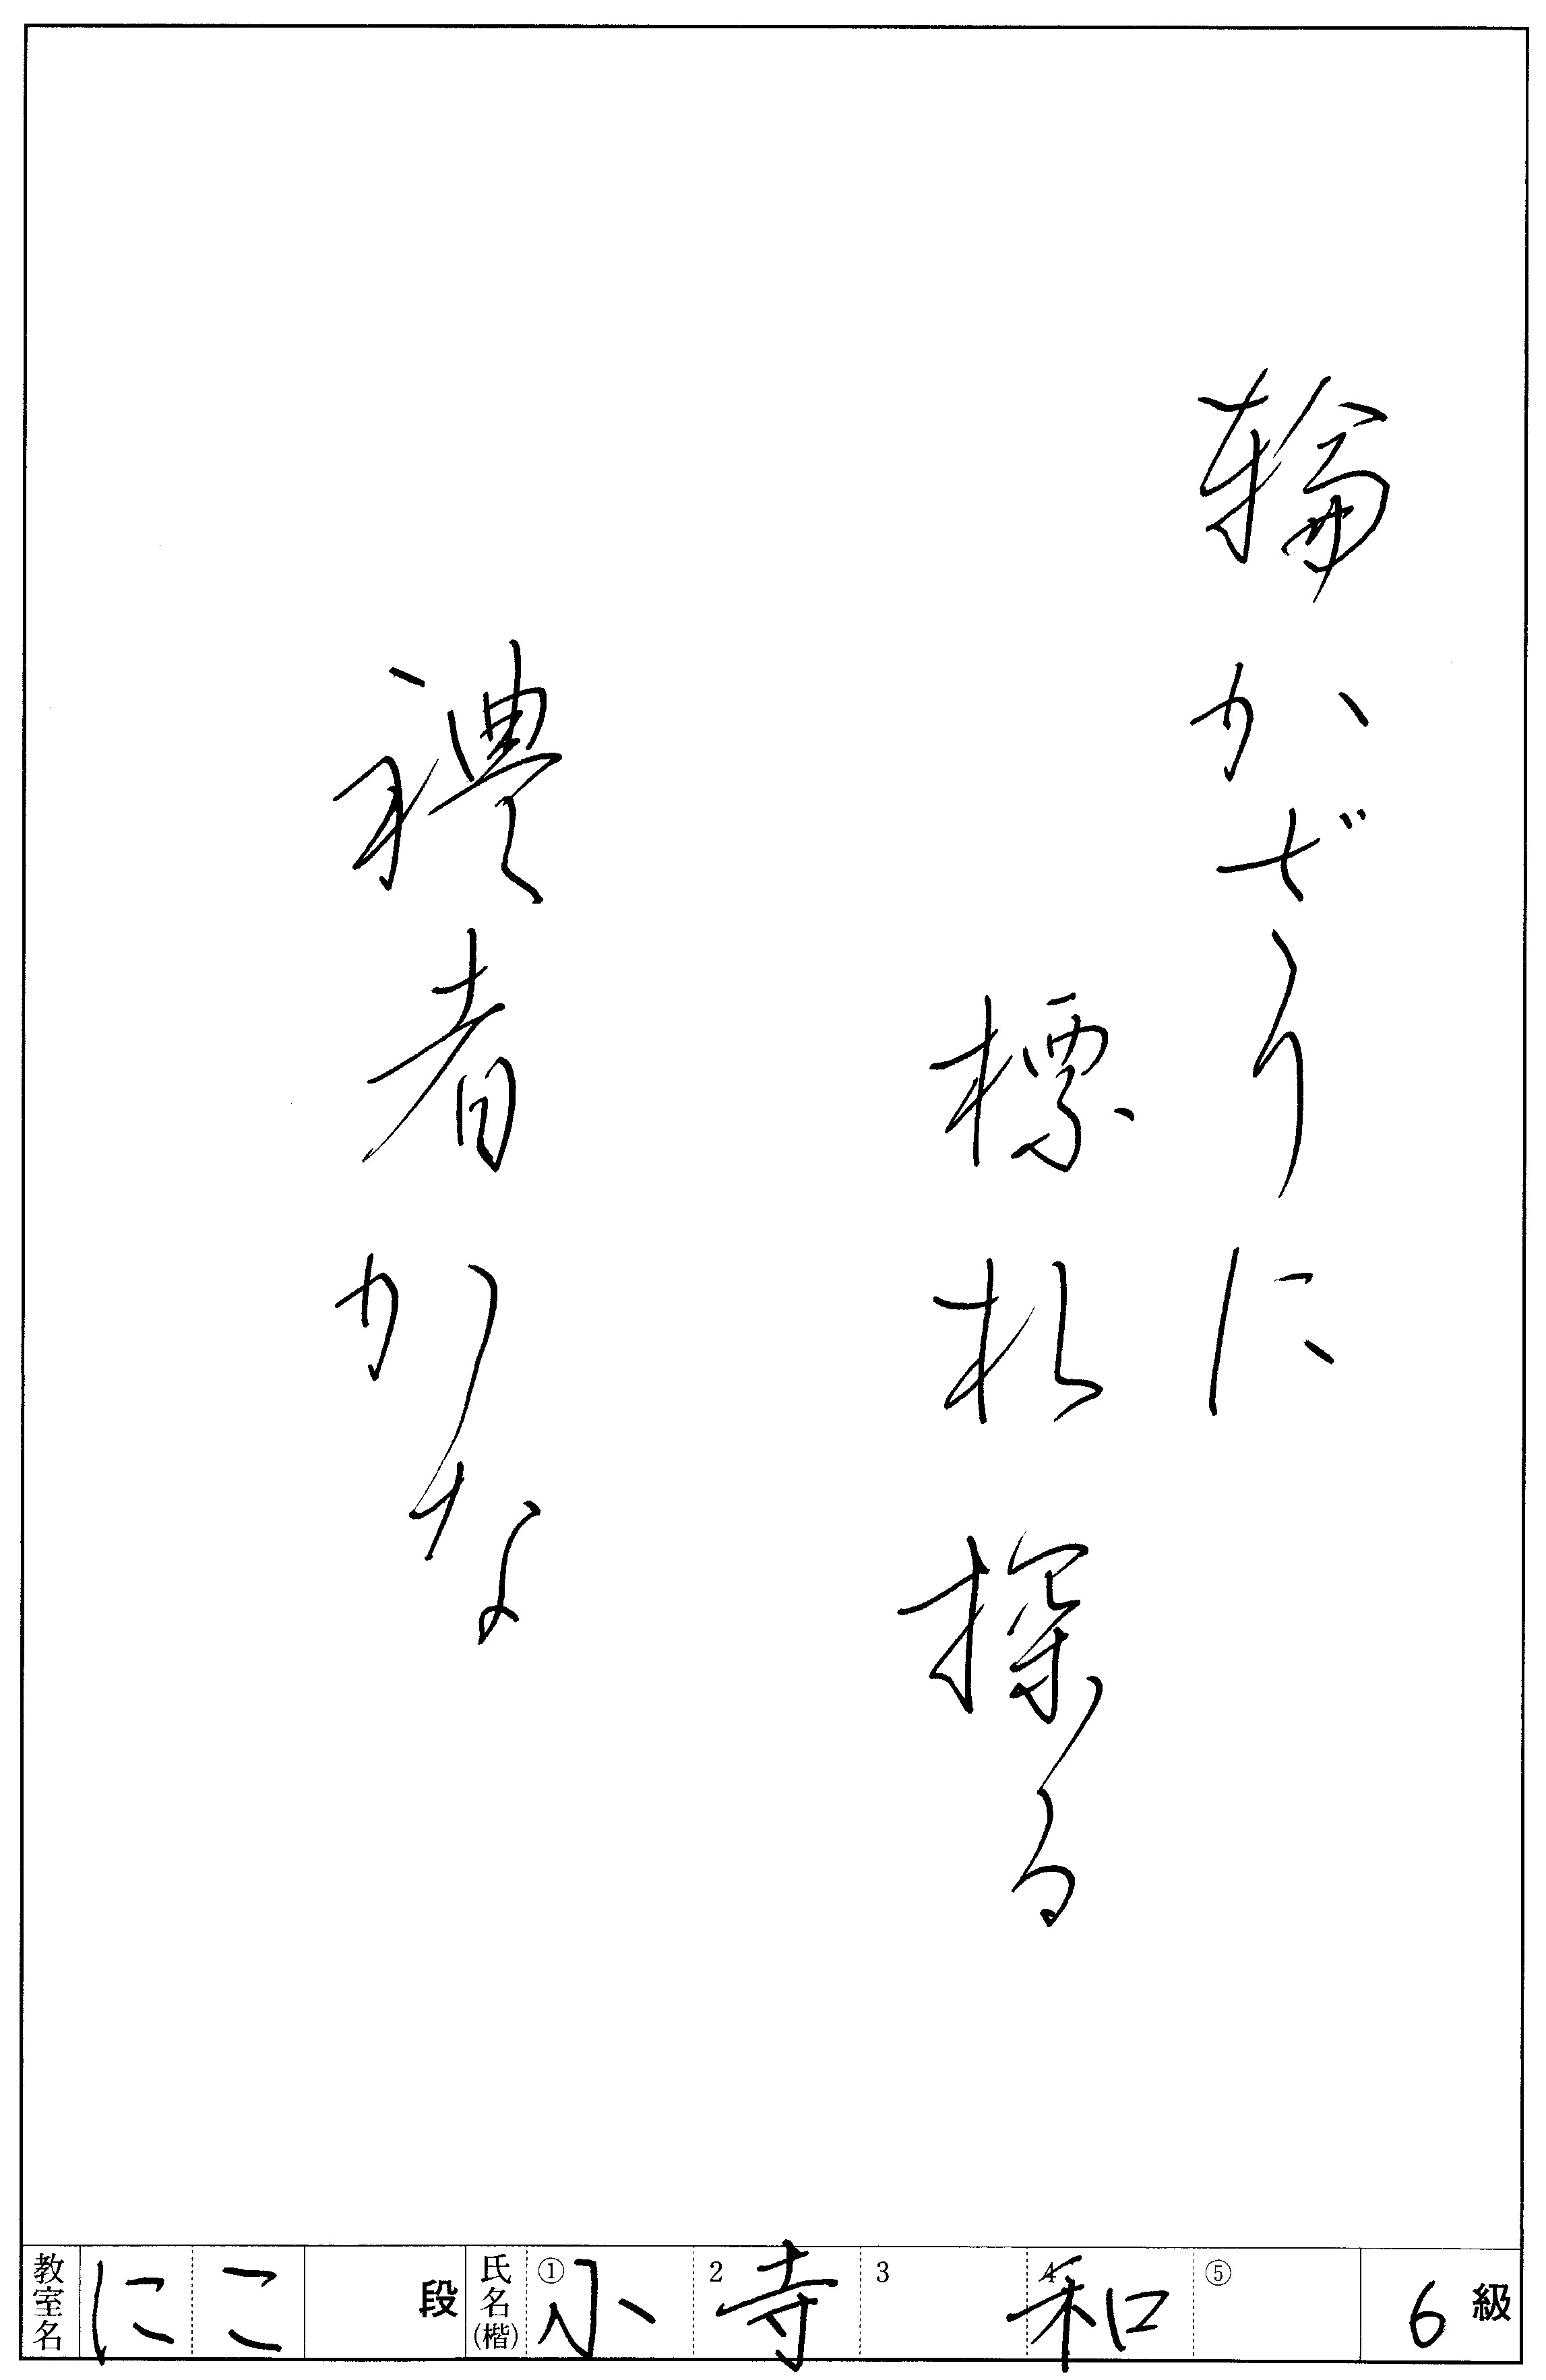 輪かざりに
標札探る
禮者かな
教室名 にこ 段 氏名(楷) ①小 2寺 3 4和 ⑤ 6級